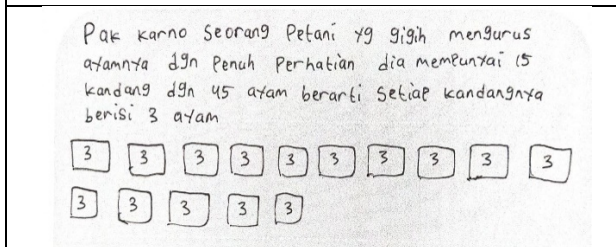 Pak Karno Seorang Petani yg gigih mengurus
ayamnya dgn Penuh Perhatian dia mempunyai 15
kandang dgn 45 ayam berarti setiap kandangnya
berisi 3 ayam
3 3 3 3 3 3 3 3 3 3
3 3 3 3 3